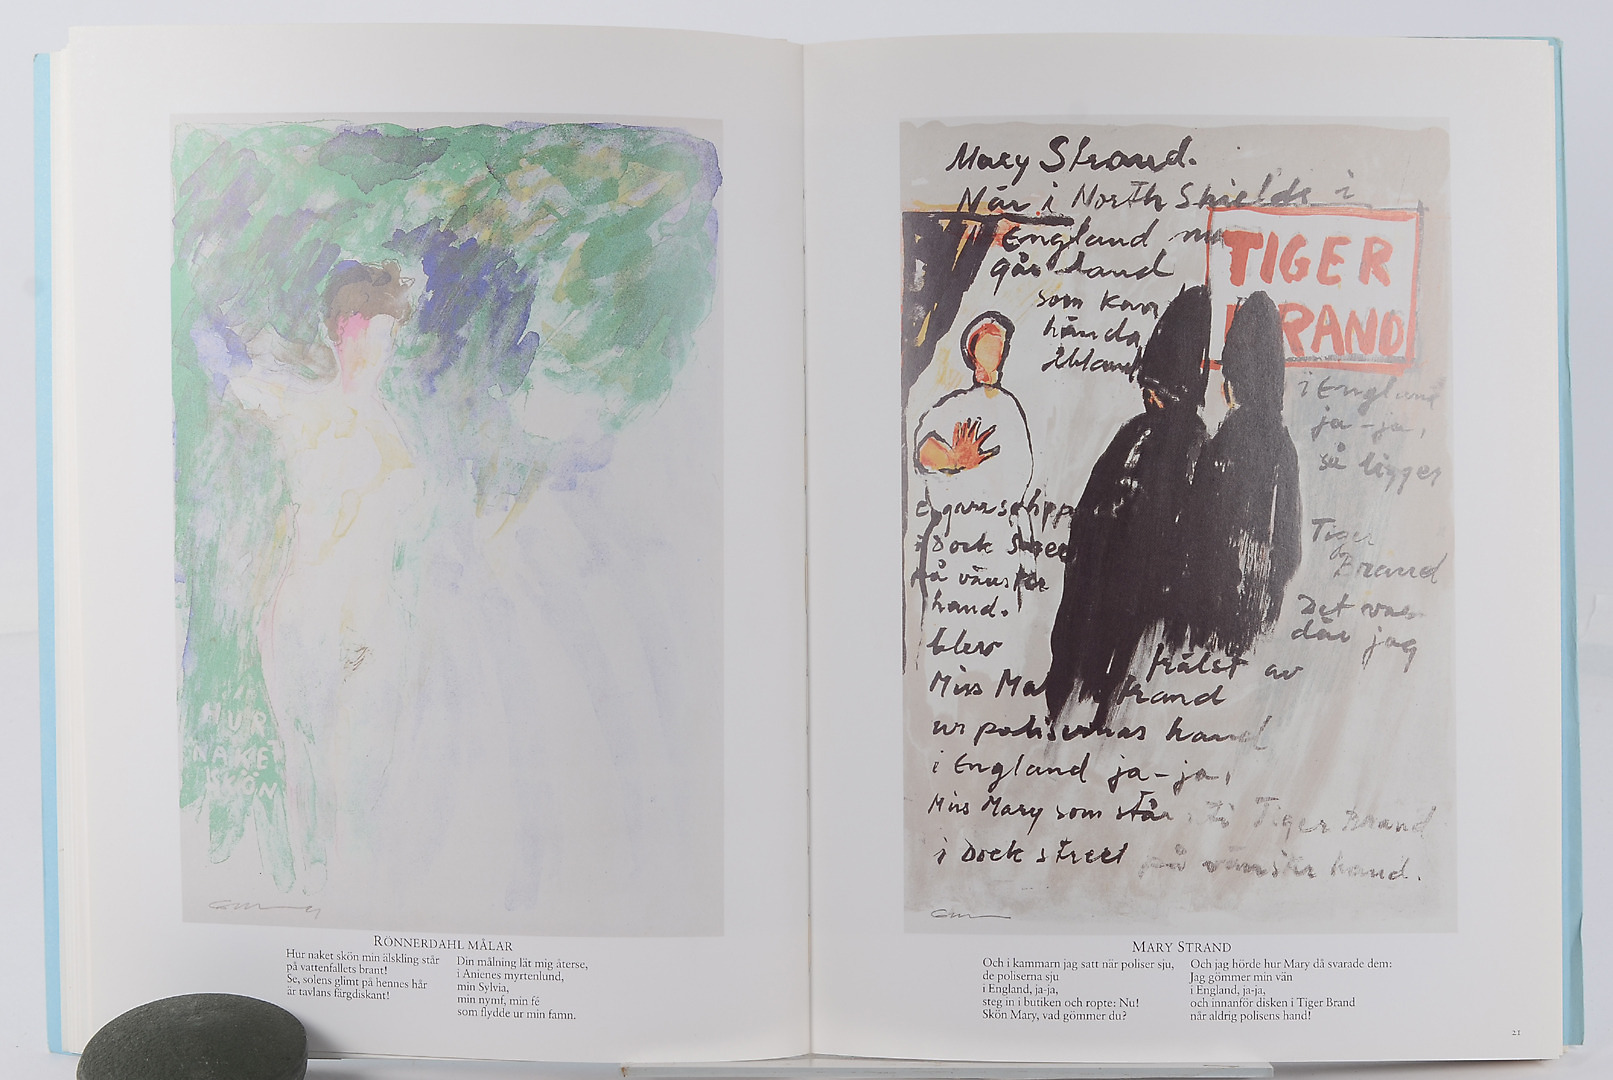 HUR
NAKET
SKÖN
RÖNNERDAHL MÅLAR
Hur naket skön min älskling står
på vattenfallets brant!
Se, solens glimt på hennes hår
är tavlans färgdiskant!
Din målning låt mig återse,
i Anienes myrtenlund,
min Sylvia,
min nymf, min fé
som flydde ur min famn.
Mary Strand.
När i North Shields i
England
går iland
som kan
hända
ibland
TIGER
BRAND
i England
ja-ja,
så ligger
Tiger
Brand
Det var
där jag
i Dock Street
på vänster
hand.
blev
frälst av
Miss Mary Strand
ur polisernas hand
i England ja-ja,
Miss Mary som står i Tiger Brand
i Dock street på vänster hand.
MARY STRAND
Och i kammarn jag satt när poliser sju,
de poliserna sju
i England, ja-ja,
steg in i butiken och ropte: Nu!
Skön Mary, vad gömmer du?
Och jag hörde hur Mary då svarade dem:
Jag gömmer min vän
i England, ja-ja,
och innanför disken i Tiger Brand
når aldrig polisens hand!
21